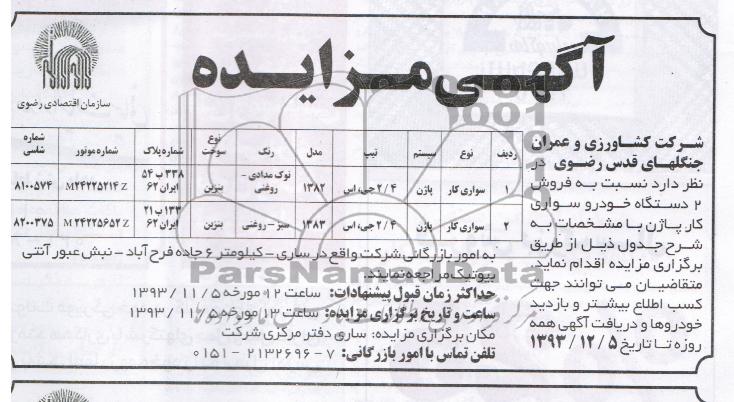 آگهی مزایده
سازمان اقتصادی رضوی
شرکت کشاورزی و عمران
جنگلهای قدس رضوی در
نظر دارد نسبت به فروش
۲ دستگاه خودرو سواری
کار پاژن با مشخصات به
شرح جدول ذیل از طریق
برگزاری مزایده اقدام نماید.
متقاضیان می توانند جهت
کسب اطلاع بیشتر و بازدید
خودروها و دریافت آگهی همه
روزه تا تاریخ ۱۳۹۳/۱۲/۵
ردیف نوع سیستم تیپ مدل رنگ نوع سوخت شماره پلاک شماره موتور شماره شاسی
۱ سواری کار پاژن ۲/۴ جی، اس ۱۳۸۲ نوک مدادی - روغنی بنزین ۳۳۸ ب ۵۴ ایران ۶۲ M۲۴۲۲۵۲۱۴Z ۸۱۰۰۵۷۴
۲ سواری کار پاژن ۲/۴ جی، اس ۱۳۸۳ سبز - روغنی بنزین ۱۳۳ ب ۲۱ ایران ۶۲ M۲۴۲۲۵۶۵۲Z ۸۲۰۰۳۷۵
به امور بازرگانی شرکت واقع در ساری - کیلومتر ۶ جاده فرح آباد - نبش عبور آنتی
بیوتیک مراجعه نمایند.
حداکثر زمان قبول پیشنهادات: ساعت ۱۲ مورخه ۱۳۹۳/۱۱/۵
ساعت و تاریخ برگزاری مزایده: ساعت ۱۳ مورخه ۱۳۹۳/۱۱/۵
مکان برگزاری مزایده: ساری دفتر مرکزی شرکت
تلفن تماس با امور بازرگانی: ۷-۲۱۳۲۶۹۶-۰۱۵۱
ParsNamadData